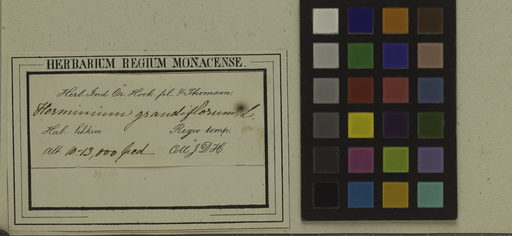 HERBARIUM REGIUM MONACENSE.
Herb. Ind. Or. Hook. fil. & Thomson.
Herminium grandiflorum L.
Hab. Sikkim Regio temp.
alt. 10-13,000 ped. Coll. J.D.H.